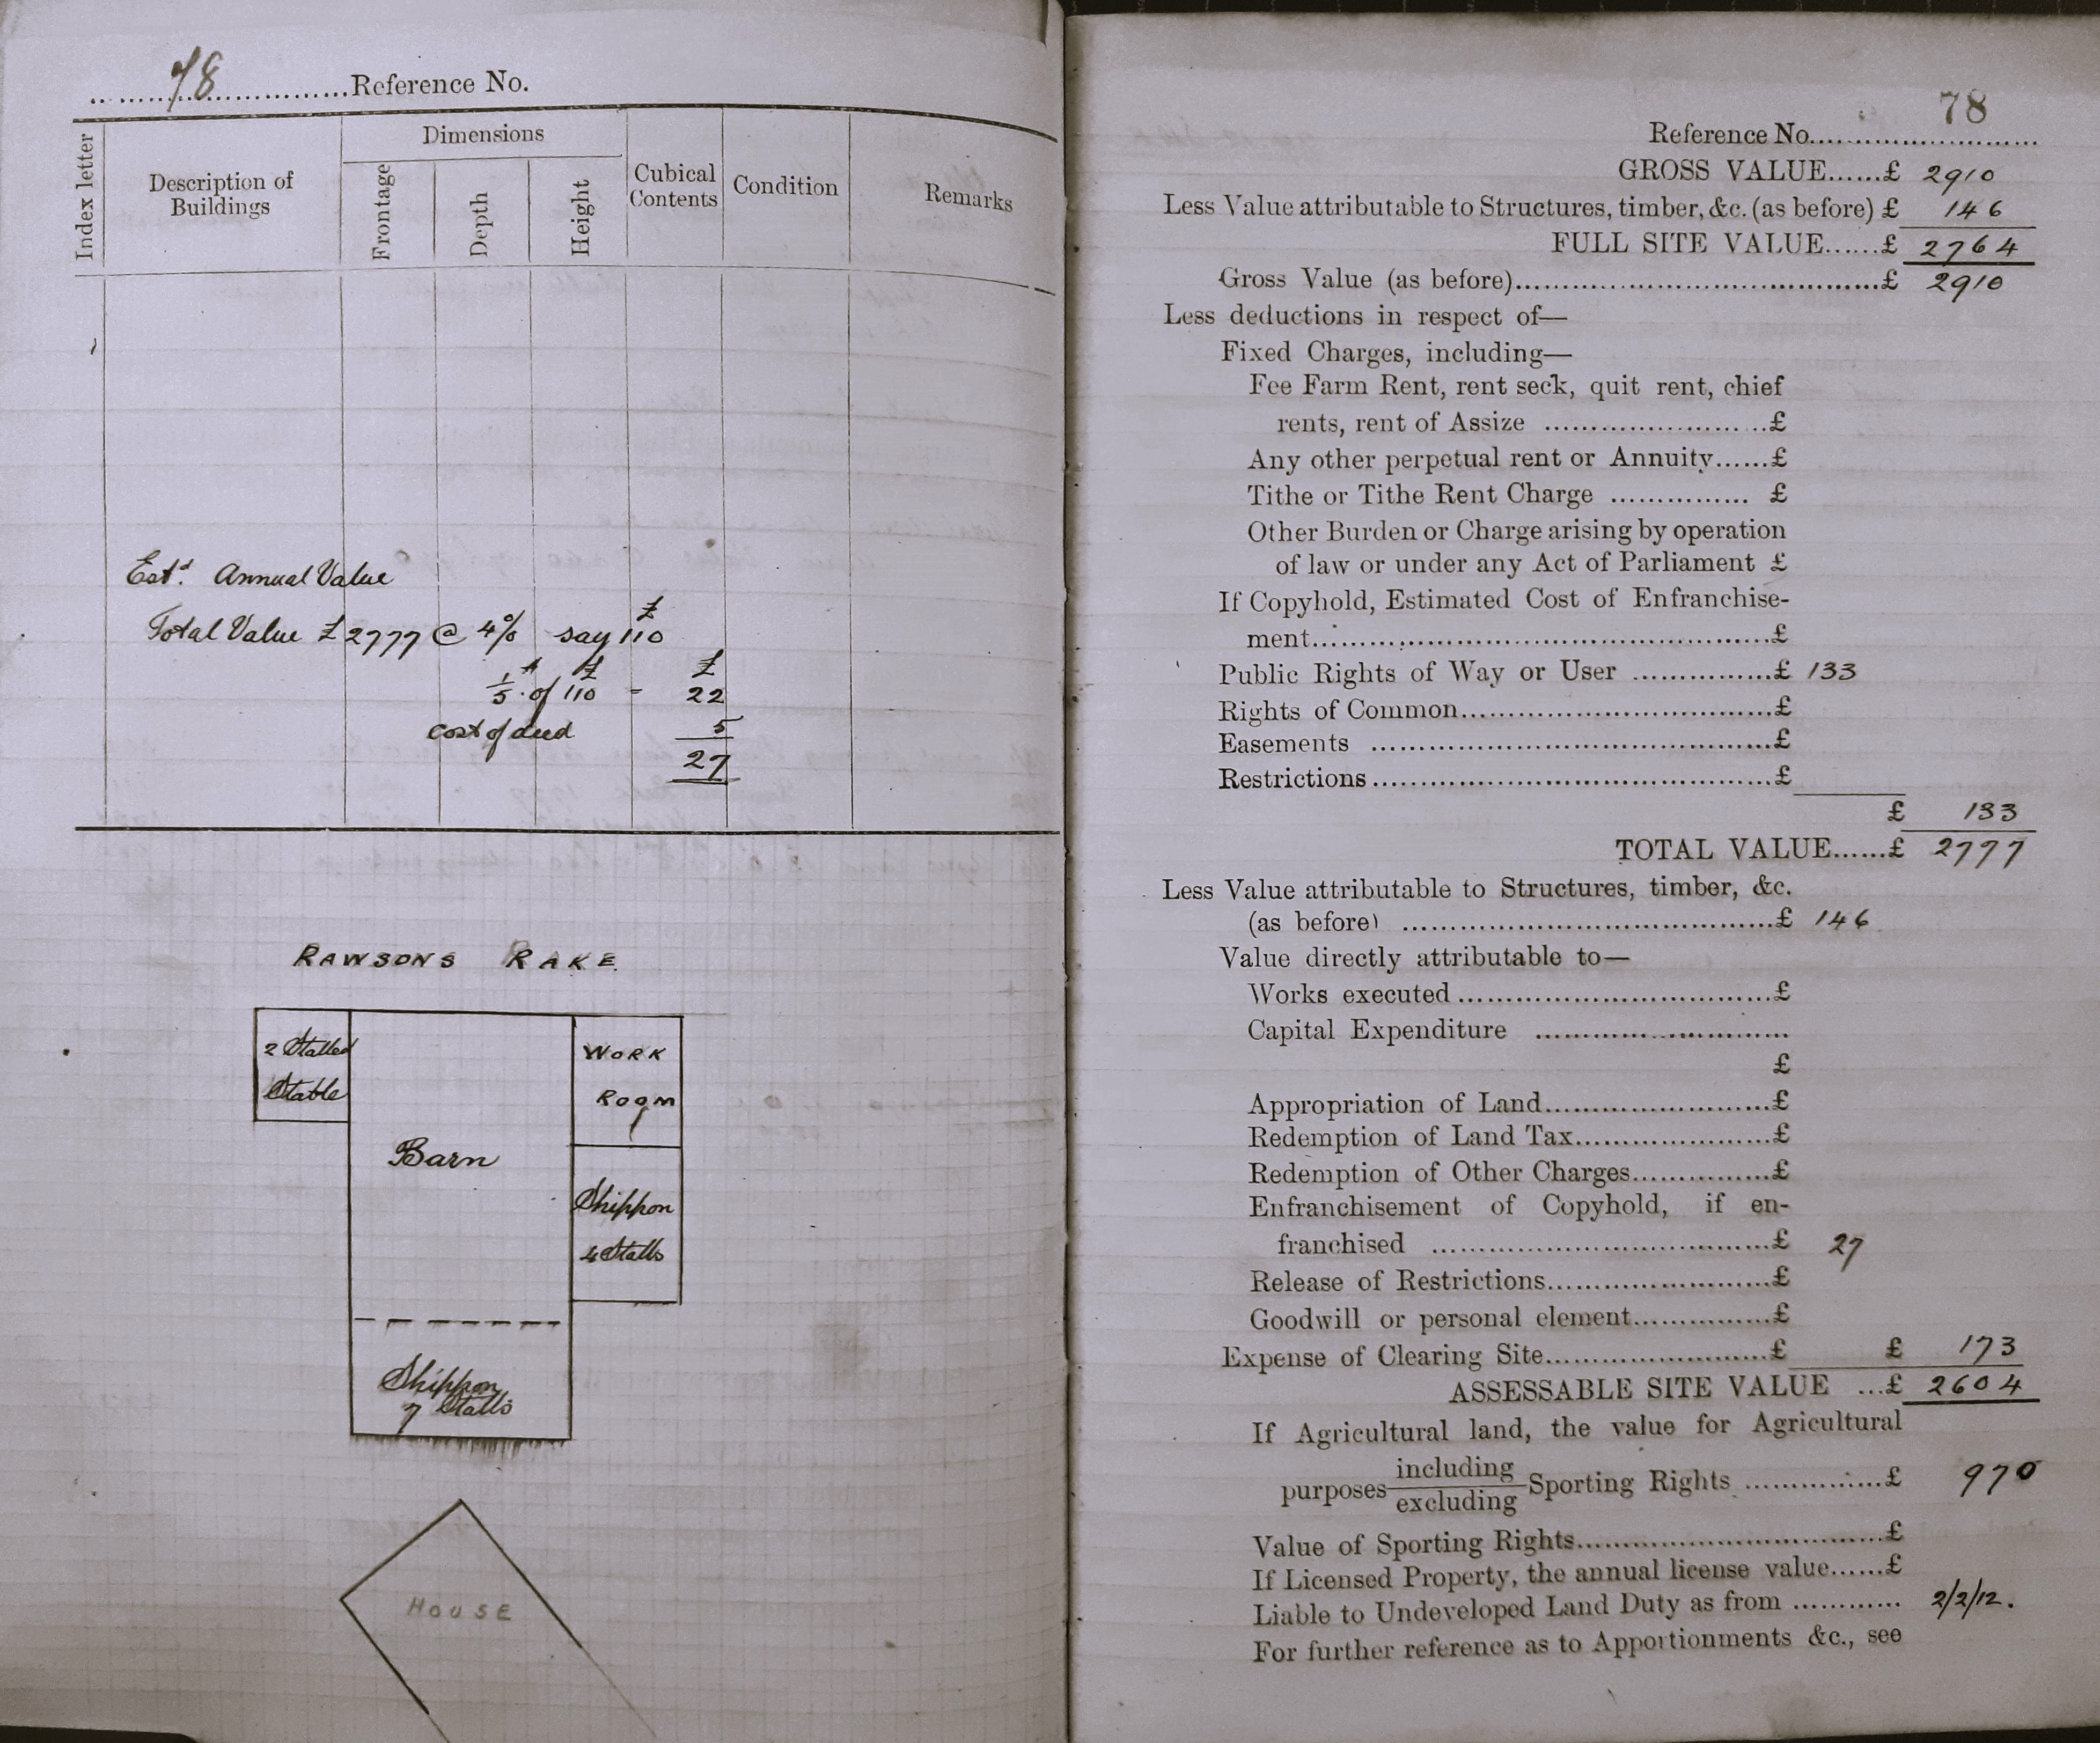 78 Reference No.
Index letter
Description of Buildings
Dimensions
Frontage
Depth
Height
Cubical Contents
Condition
Remarks
Estd. Annual Value
Total Value £2777 @ 4% say £110
1/5 of £110 - £22
cost of deed 5
27
RAWSONS RAKE.
2 Stalled
Stable
Barn
WORK
ROOM
Shippon
4 Stalls
Shippon
7 Stalls
HOUSE
78
Reference No.
GROSS VALUE......£ 2910
Less Value attributable to Structures, timber, &c. (as before) £ 146
FULL SITE VALUE......£ 2764
Gross Value (as before)......£ 2910
Less deductions in respect of—
Fixed Charges, including—
Fee Farm Rent, rent seck, quit rent, chief
rents, rent of Assize ......£
Any other perpetual rent or Annuity......£
Tithe or Tithe Rent Charge ...... £
Other Burden or Charge arising by operation
of law or under any Act of Parliament £
If Copyhold, Estimated Cost of Enfranchise-
ment......£
Public Rights of Way or User ......£ 133
Rights of Common......£
Easements ......£
Restrictions......£
£ 133
TOTAL VALUE......£ 2777
Less Value attributable to Structures, timber, &c.
(as before) ......£ 146
Value directly attributable to—
Works executed ......£
Capital Expenditure ......
£
Appropriation of Land......£
Redemption of Land Tax......£
Redemption of Other Charges......£
Enfranchisement of Copyhold, if en-
franchised ......£ 27
Release of Restrictions......£
Goodwill or personal element......£
Expense of Clearing Site......£ £ 173
ASSESSABLE SITE VALUE ...£ 2604
If Agricultural land, the value for Agricultural
purposes including/excluding Sporting Rights ......£ 970
Value of Sporting Rights......£
If Licensed Property, the annual license value......£
Liable to Undeveloped Land Duty as from ...... 2/2/12.
For further reference as to Apportionments &c., see